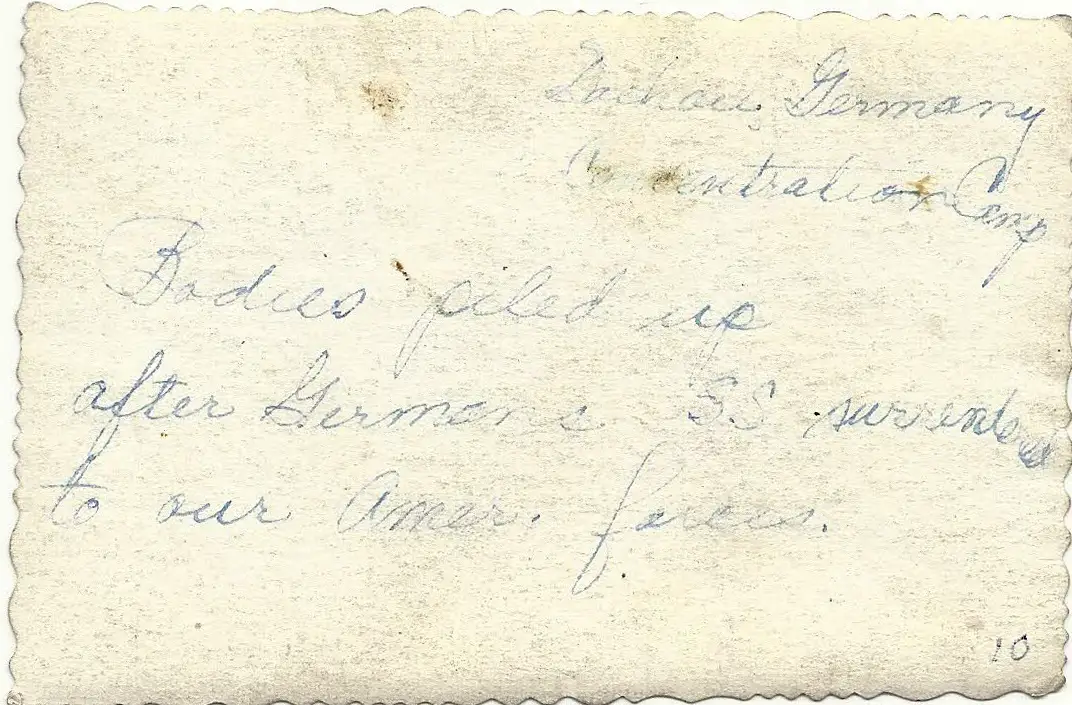 Dachau, Germany
Concentration Camp
Bodies piled up
after Germans SS surrendered
to our Amer. forces.
10